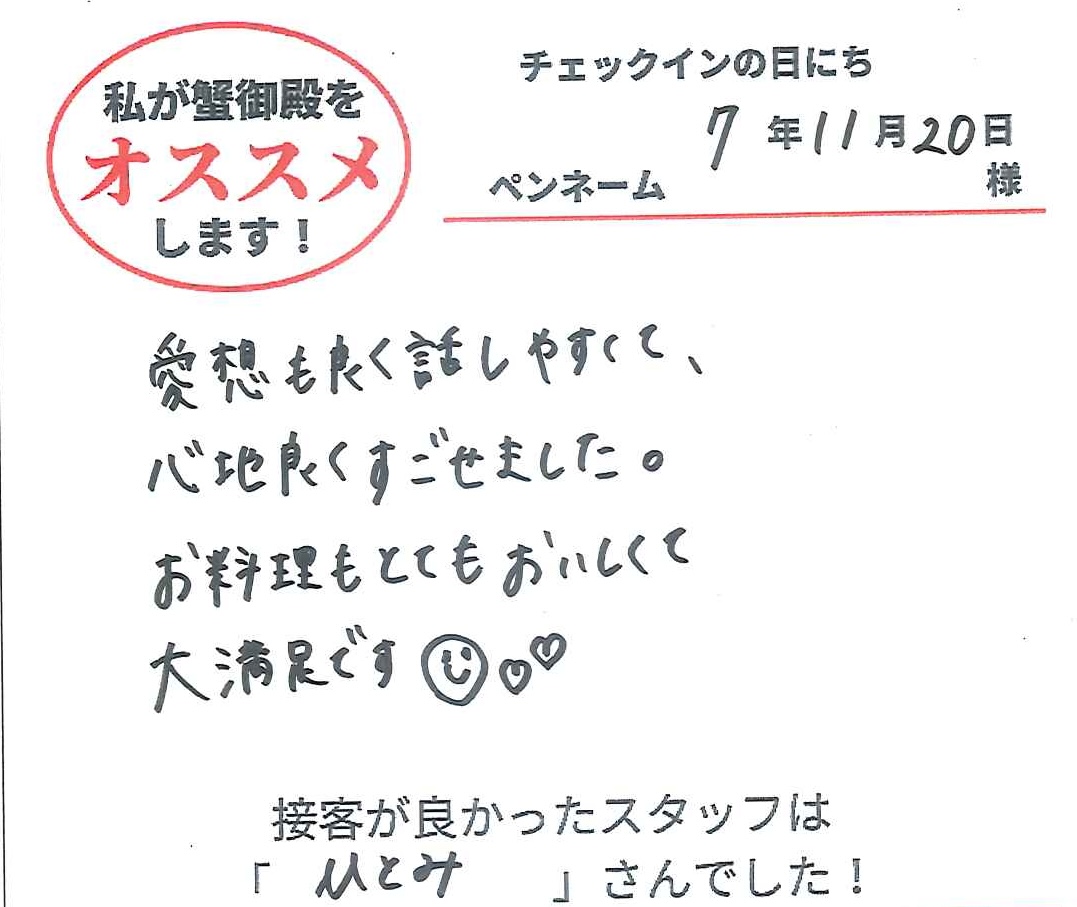 私が蟹御殿を
オススメ
します！
チェックインの日にち
7年11月20日
ペンネーム 様
愛想も良く話しやすくて、
心地良くすごせました。
お料理もとてもおいしくて
大満足です
接客が良かったスタッフは
「ひとみ」さんでした！